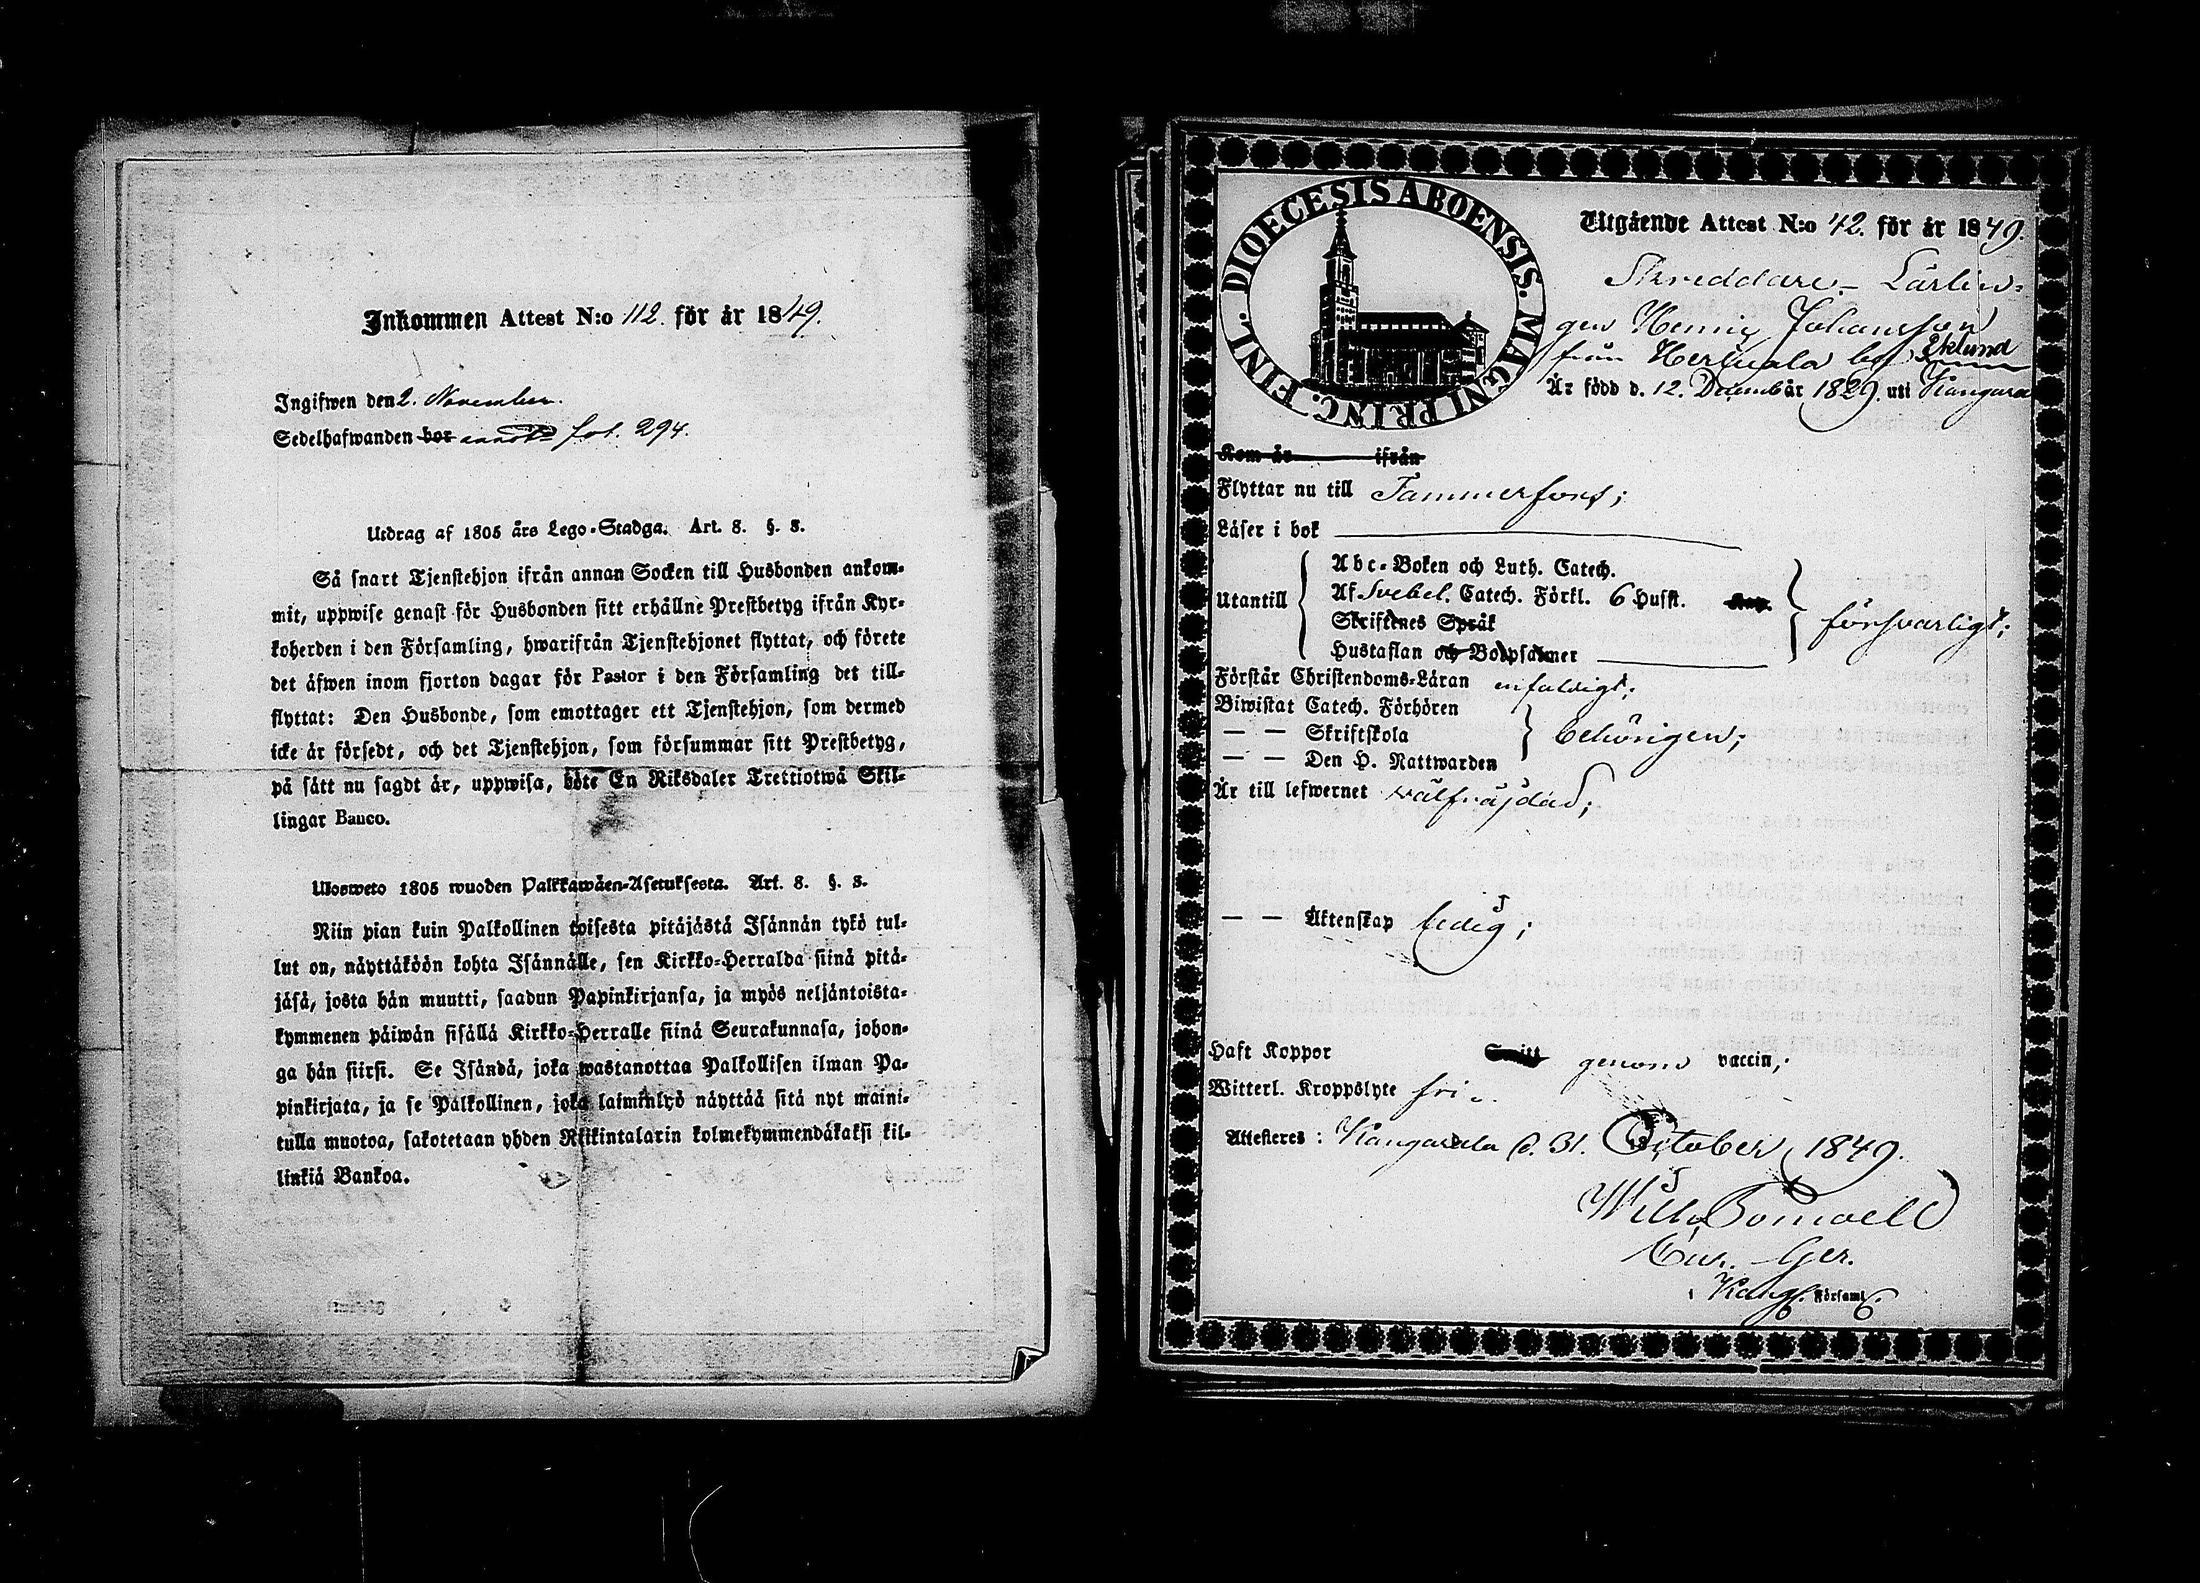 Inkommen Attest N:o 112. för år 1849.
Ingifwen den 2. November.
Sedelhafwanden bor fol. 294.
Utdrag af 1805 års Lego-Stadga. Art. 8. §. 8.
Så snart Tjenstehjon ifrån annan Socken till Husbonden ankom-
mit, uppwise genast för Husbonden sitt erhållne Prestbetyg ifrån Kyr-
koherden i den Församling, hwarifrån Tjenstehjonet flyttat, och förete
det äfwen inom fjorton dagar för Pastor i den Församling det till-
flyttat: Den Husbonde, som emottager ett Tjenstehjon, som dermed
icke är försedt, och det Tjenstehjon, som försummar sitt Prestbetyg,
på sätt nu sagdt är, uppwisa, böte En Riksdaler Trettiotwå Skil-
lingar Banco.
Ulosweto 1805 wuoden Palkkawäen-Asetuksesta. Art. 8. §. 8.
Niin pian kuin Palkollinen toisesta pitäjästä Isännän tykö tul-
lut on, näyttäköön kohta Isännälle, sen Kirkko-Herralda siinä pitä-
jäsä, josta hän muutti, saadun Papinkirjansa, ja myös neljäntoista-
kymmenen päiwän sisällä Kirkko-Herralle siinä Seurakunnasa, johon-
ga hän siirsi. Se Isändä, joka wastanottaa Palkollisen ilman Pa-
pinkirjata, ja se Palkollinen, joka laiminlyö näyttää sitä nyt maini-
tulla muotoa, sakotetaan yhden Riikintalarin kolmekymmendäkaksi kil-
linkiä Bankoa.
DIOECESIS ABOENSIS. MAGNI PRINC. FINL.
Utgående Attest N:o 42. för år 1849.
Skreddare-Lärlin-
gen Henric Johansson
Eklund
från Herttuala by
Är född d. 12. December år 1829. uti Kangasa
Kom år ifrån
Flyttar nu till Tammerfors;
Läser i bok
Utantill
Abc-Boken och Luth. Catech.
Af Svebel. Catech. Förkl. 6 Hufst. Kap.
Skriftenes Språk
Hustaflan och Botpsalmer
försvarligt;
Förstår Christendoms-Läran enfaldigt;
Biwistat Catech. Förhören
— — Skriftskola
— — Den H. Nattwarden
behörigen;
Är till lefwernet välfräjdad;
— — Äktenskap ledig;
Haft Koppor genom vaccin;
Witterl. Kroppslyte fri.
Attesteres: Kangasala d. 31. October 1849.
Wilh. Bonwell
Cur. Ger.
i Kang. Församl.